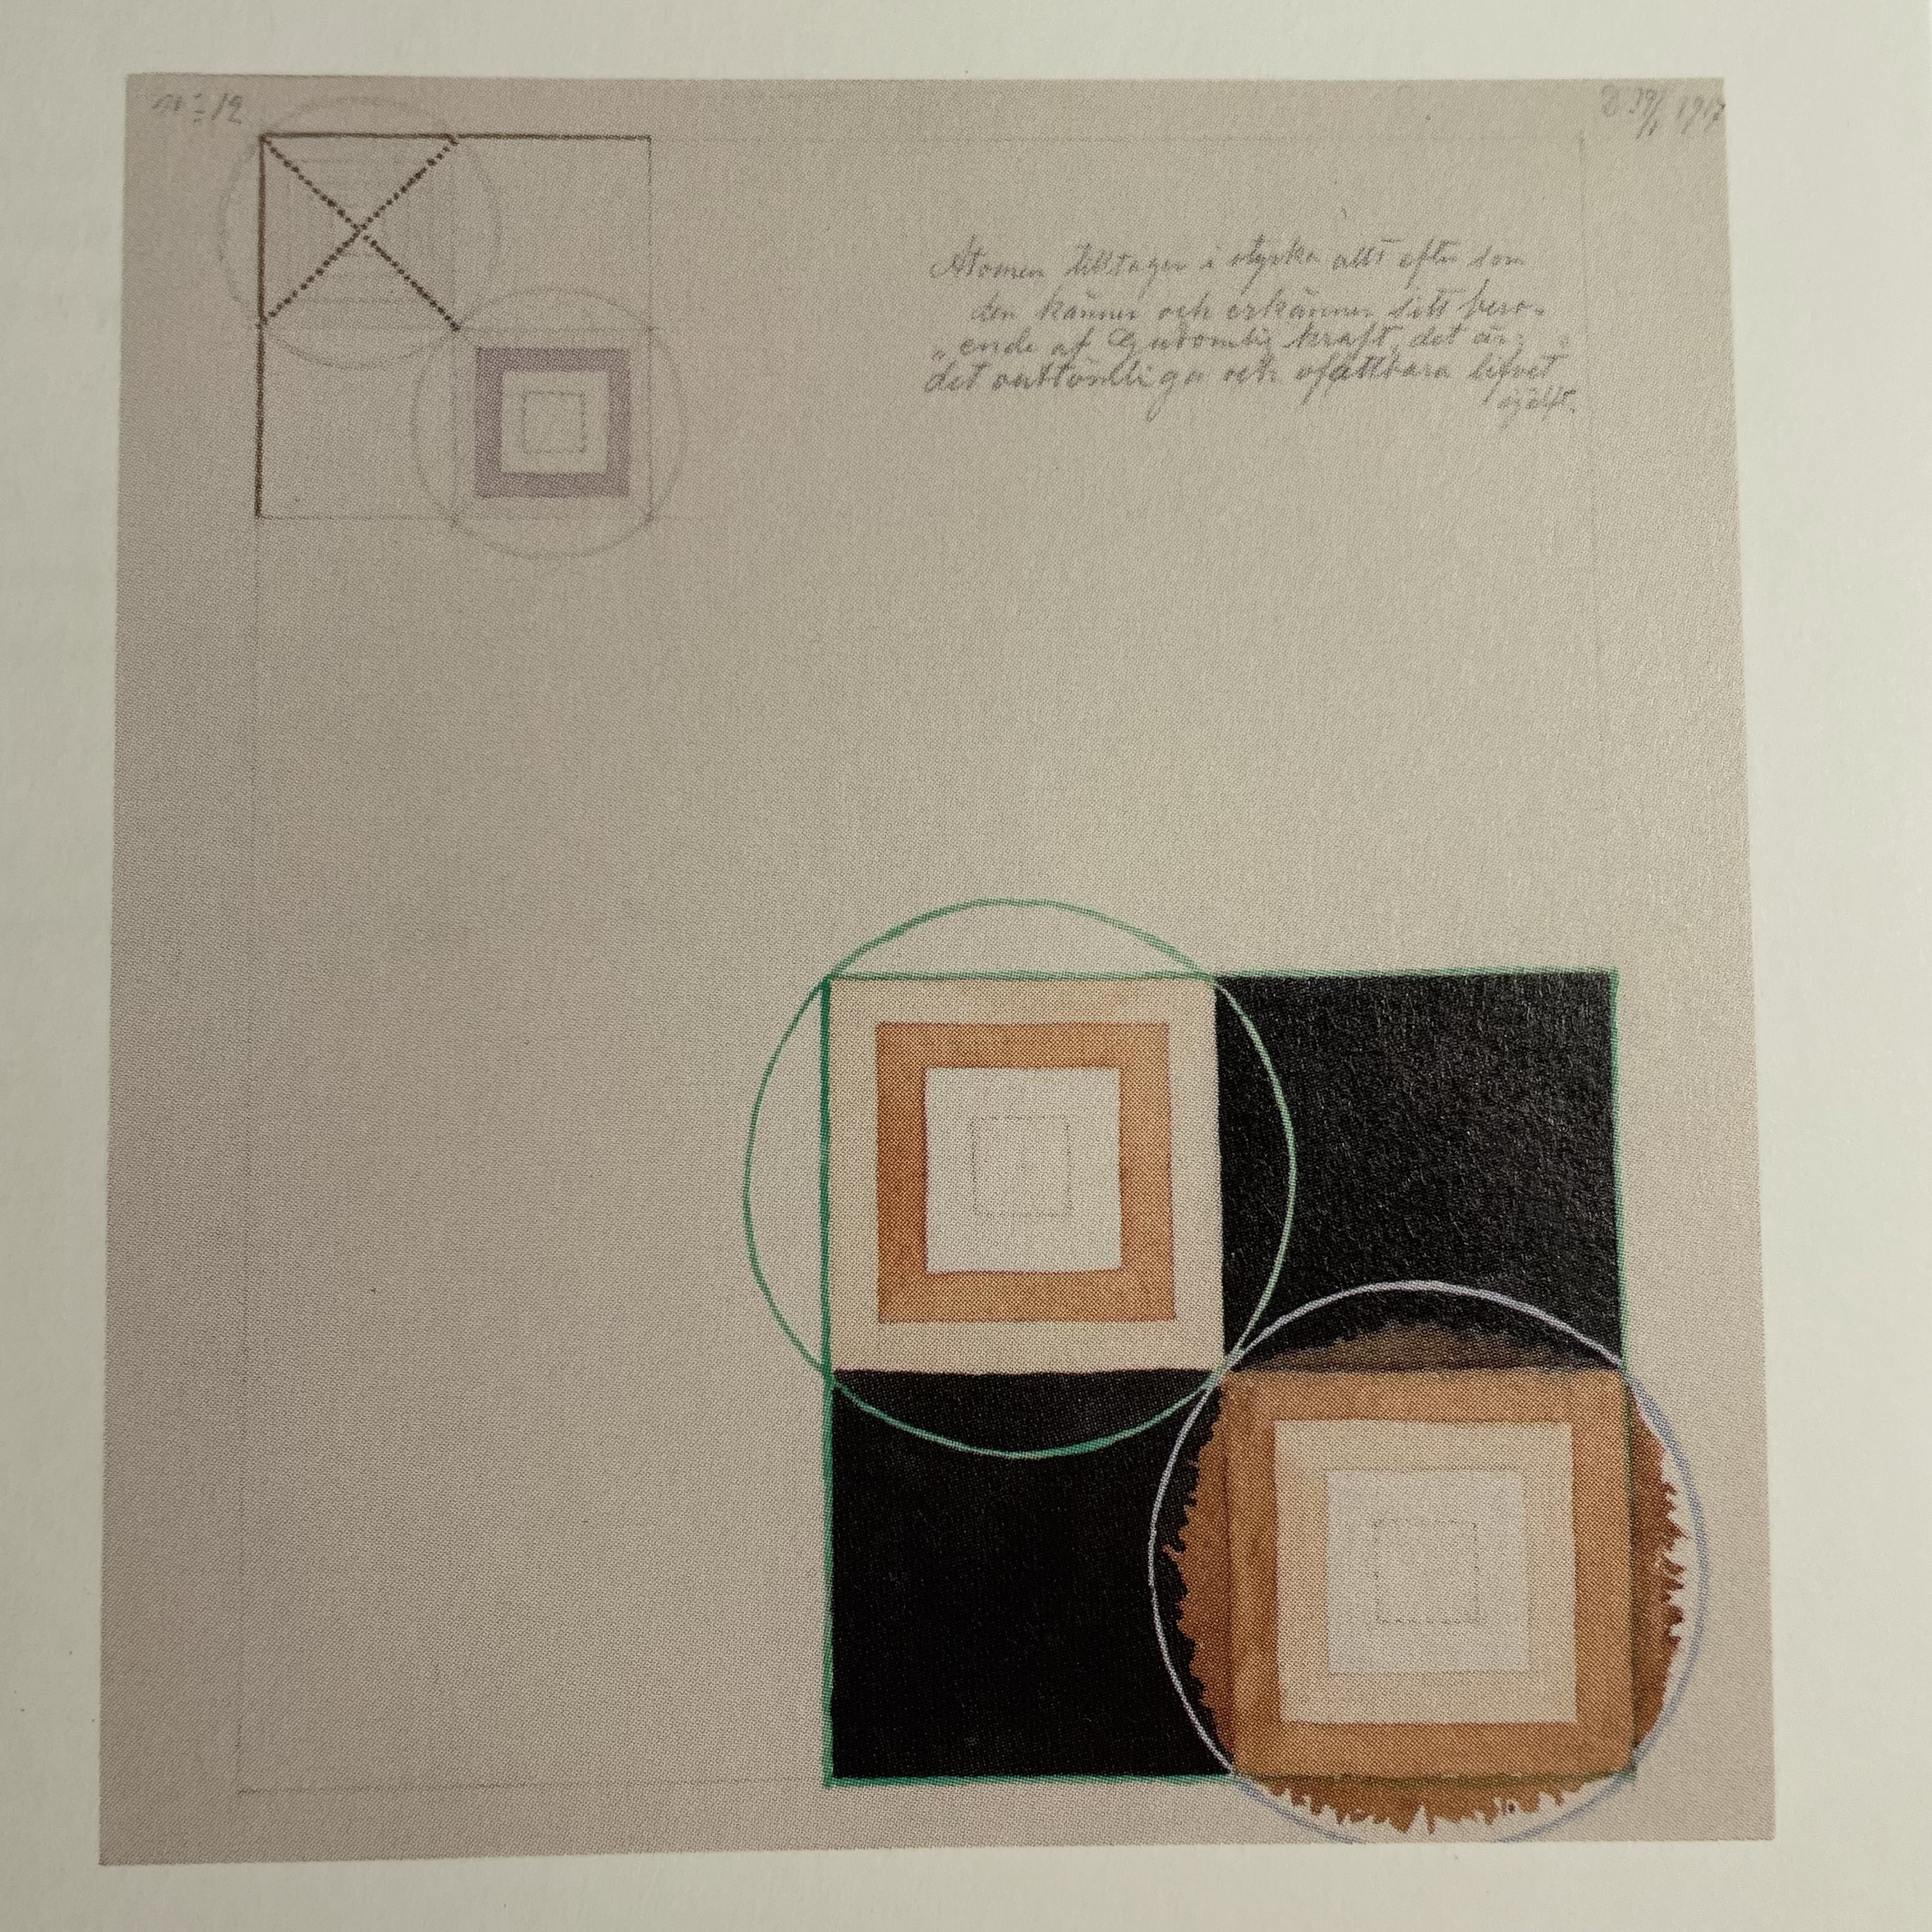 No 12
1917
Atomen tilltager i styrka allt efter som
den känner och erkänner sitt bero-
ende af Gudomlig kraft, det är
det outtömliga och ofattbara lifvet
själft.